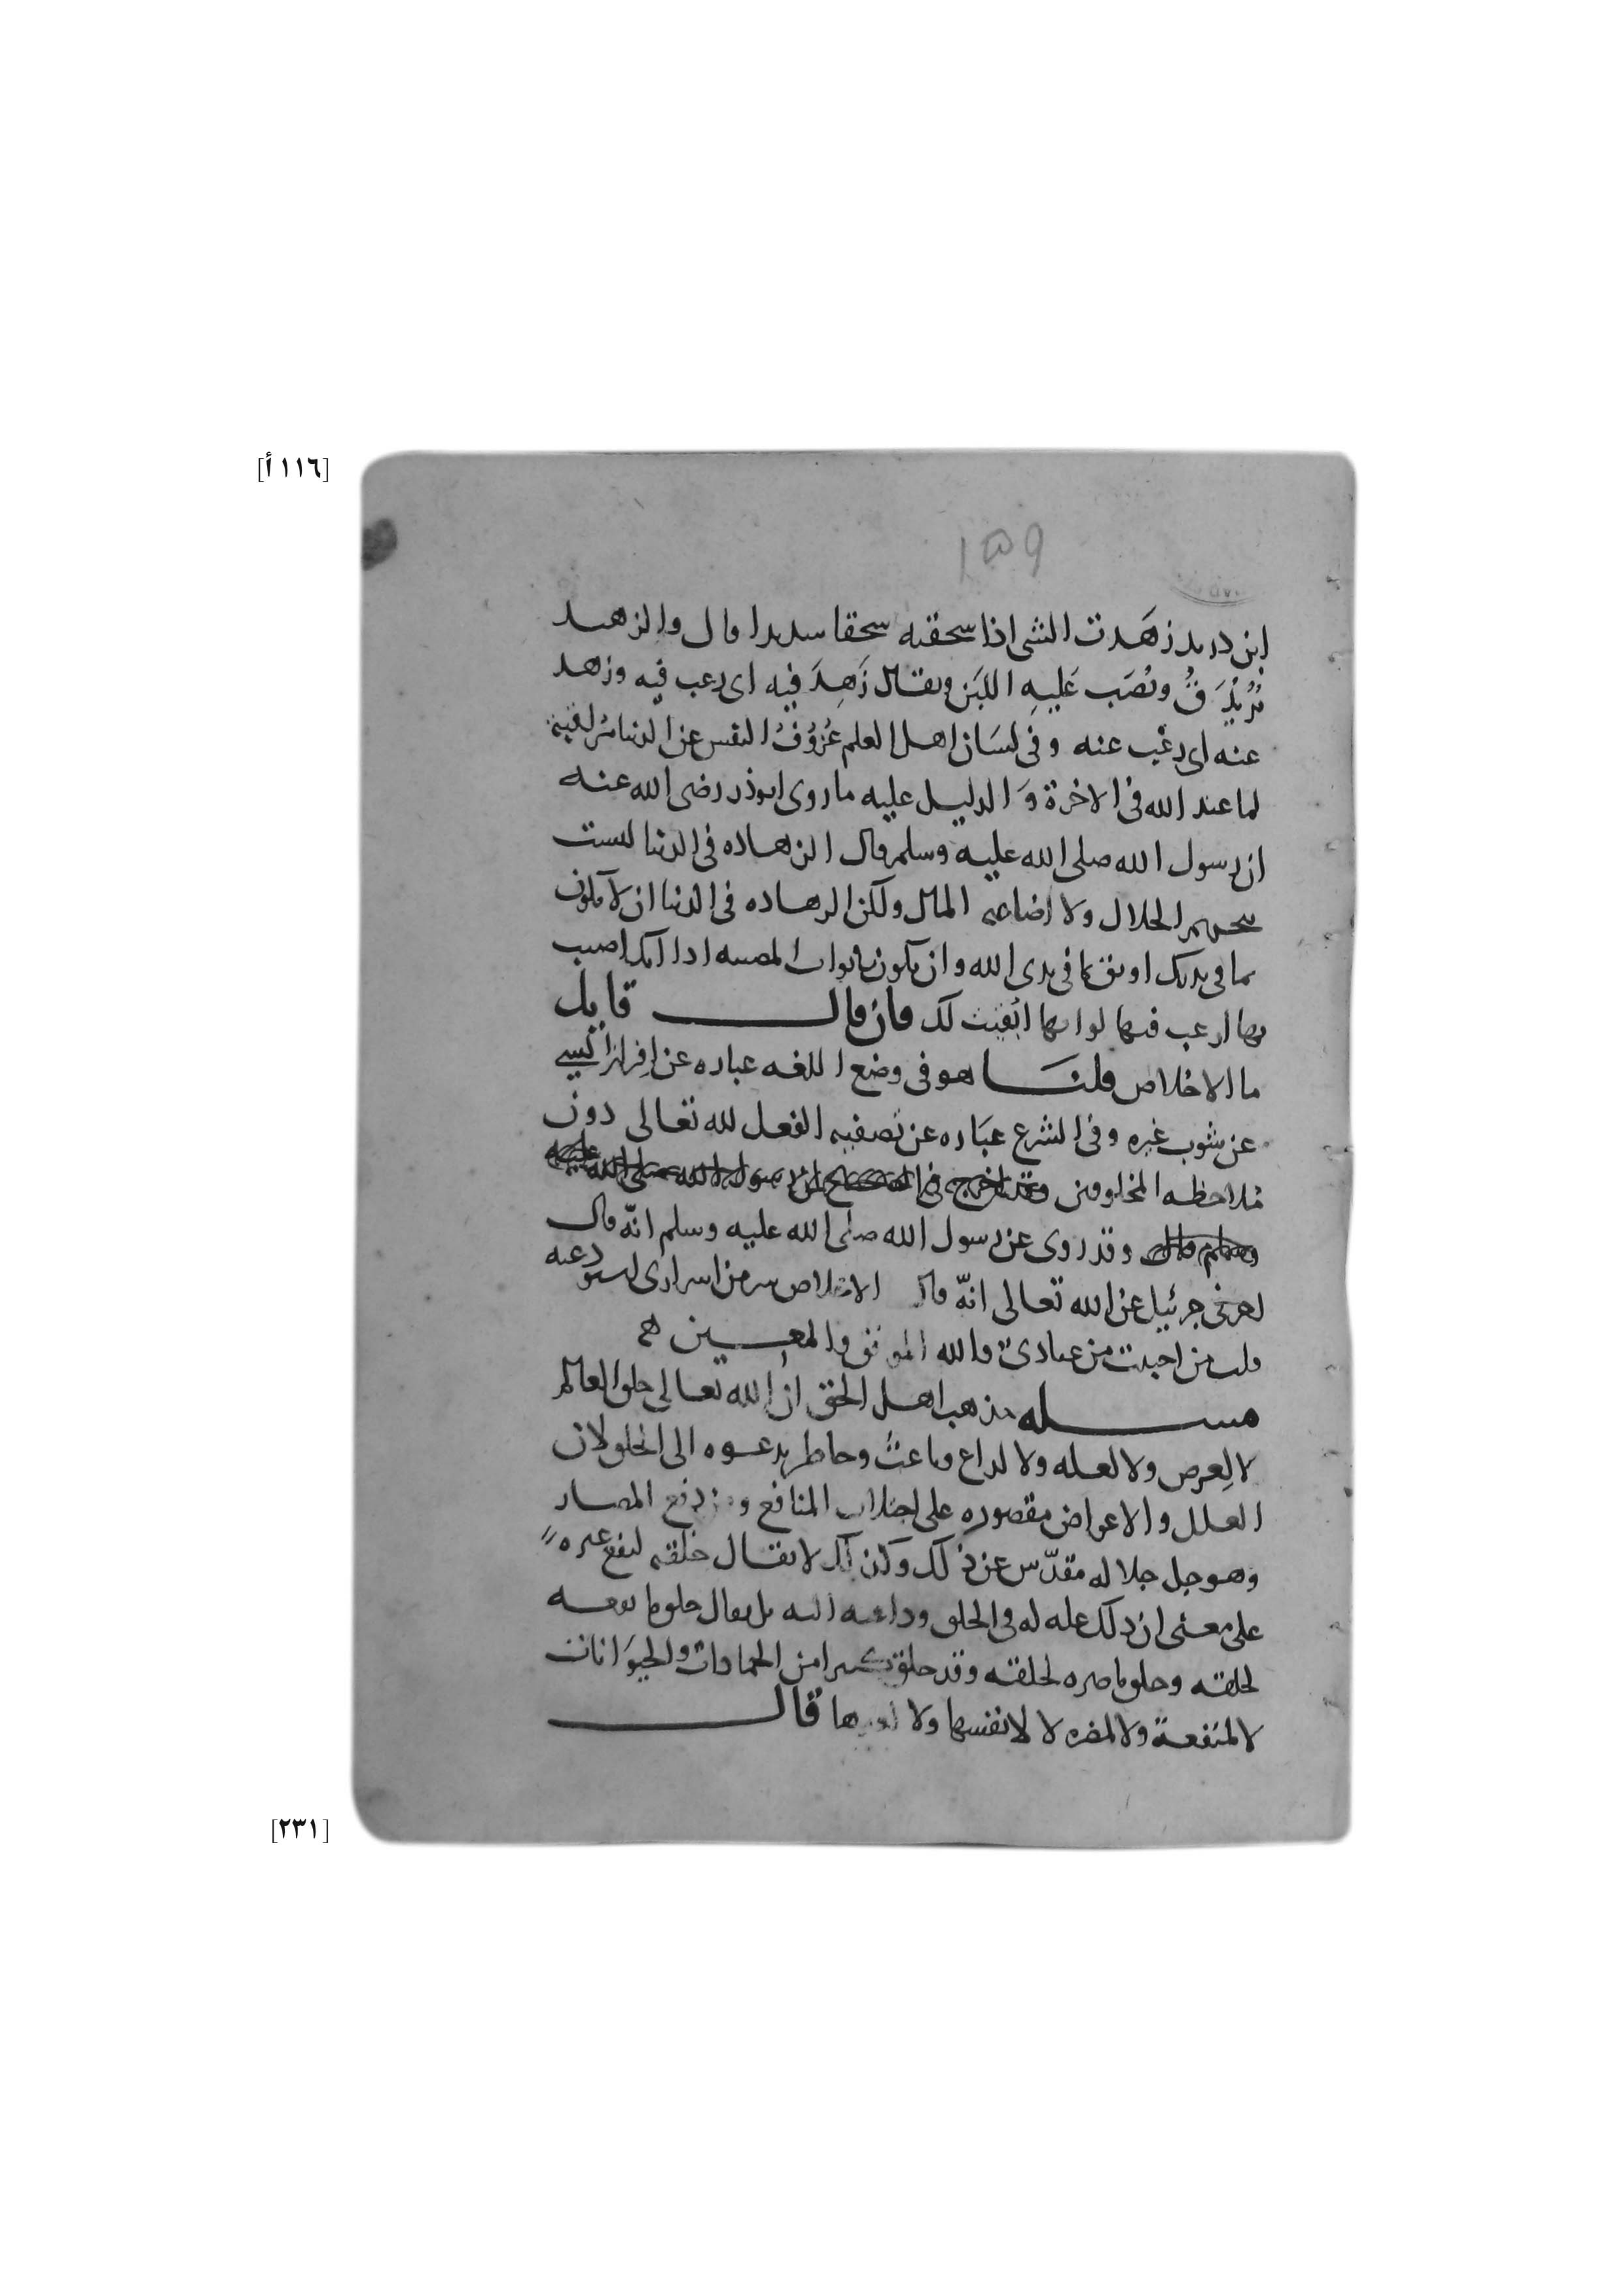 [١١٦ أ]
١٥٩
ابن دريد زهَدت الشى اذا سحقته سحقا سديدا قال والزهيد
بُرٌّ يُدَقُّ ويُصَب عَليهِ اللبَن ويقال زَهِدَ فيه اى رغب فيه وزهد
عنه اى رغب عنه وفى لسَان اهل العلم عُزُوفُ النفس عن الدنيا
لما عند الله فى الاخرة وَالدليل عليه ما روى ابوذر رضى الله عنه
ان رسول الله صلى الله عليه وسلم قال الزهاده فى الدنيا ليست
بتحريم الحلال ولا اضاعه المال ولكن الزهاده فى الدنيا ان لا تكون
بما فى يديك اوثق بما فى يدى الله وان تكون بثواب المصيبه اذا انك اصبت
بها ارغب فيها لو انها ابقيت لك فان قال قايل
ما الاخلاص قلنا هو فى وضع اللغه عباره عن افراز الشى
عن شوب غيره وفى الشرع عبَاره عن تصفيه الفعل لله تعالى دون
ملاحظه المخلوقين وقد اخرج فى الصحيح ان رسول الله صلى الله عليه
وسلم قال وقد روى عن رسول الله صلى الله عليه وسلم انّه قال
اخبرنى جبرئيل عن الله تعالى انّه قال الاخلاص سر من اسرارى استودعته
قلب من احببت من عبادى والله الموفق والمعين
مسله مذهب اهل الحق ان الله تعالى خلق العالم
لا لغرض ولا لعله ولا لداع وباعث وخاطر يدعوه الى الخلق لان
العلل والاغراض مقصوره على اجتلاب المنافع ودفع المضار
وهو جل جلاله مقدّس عن ذلك وكان كذلك لا يقال خلقه لنفع غيره
على معنى ان ذلك عله له فى الخلق وداعيه اليه بل يقال خلق ما نفعه
لخلقه وخلق ما ضره لخلقه وقد خلق كثيرا من الجمادات والحيَوانات
لا لمنفعة ولا لمضره لا لانفسها ولا لغيرها قال
[٢٣١]